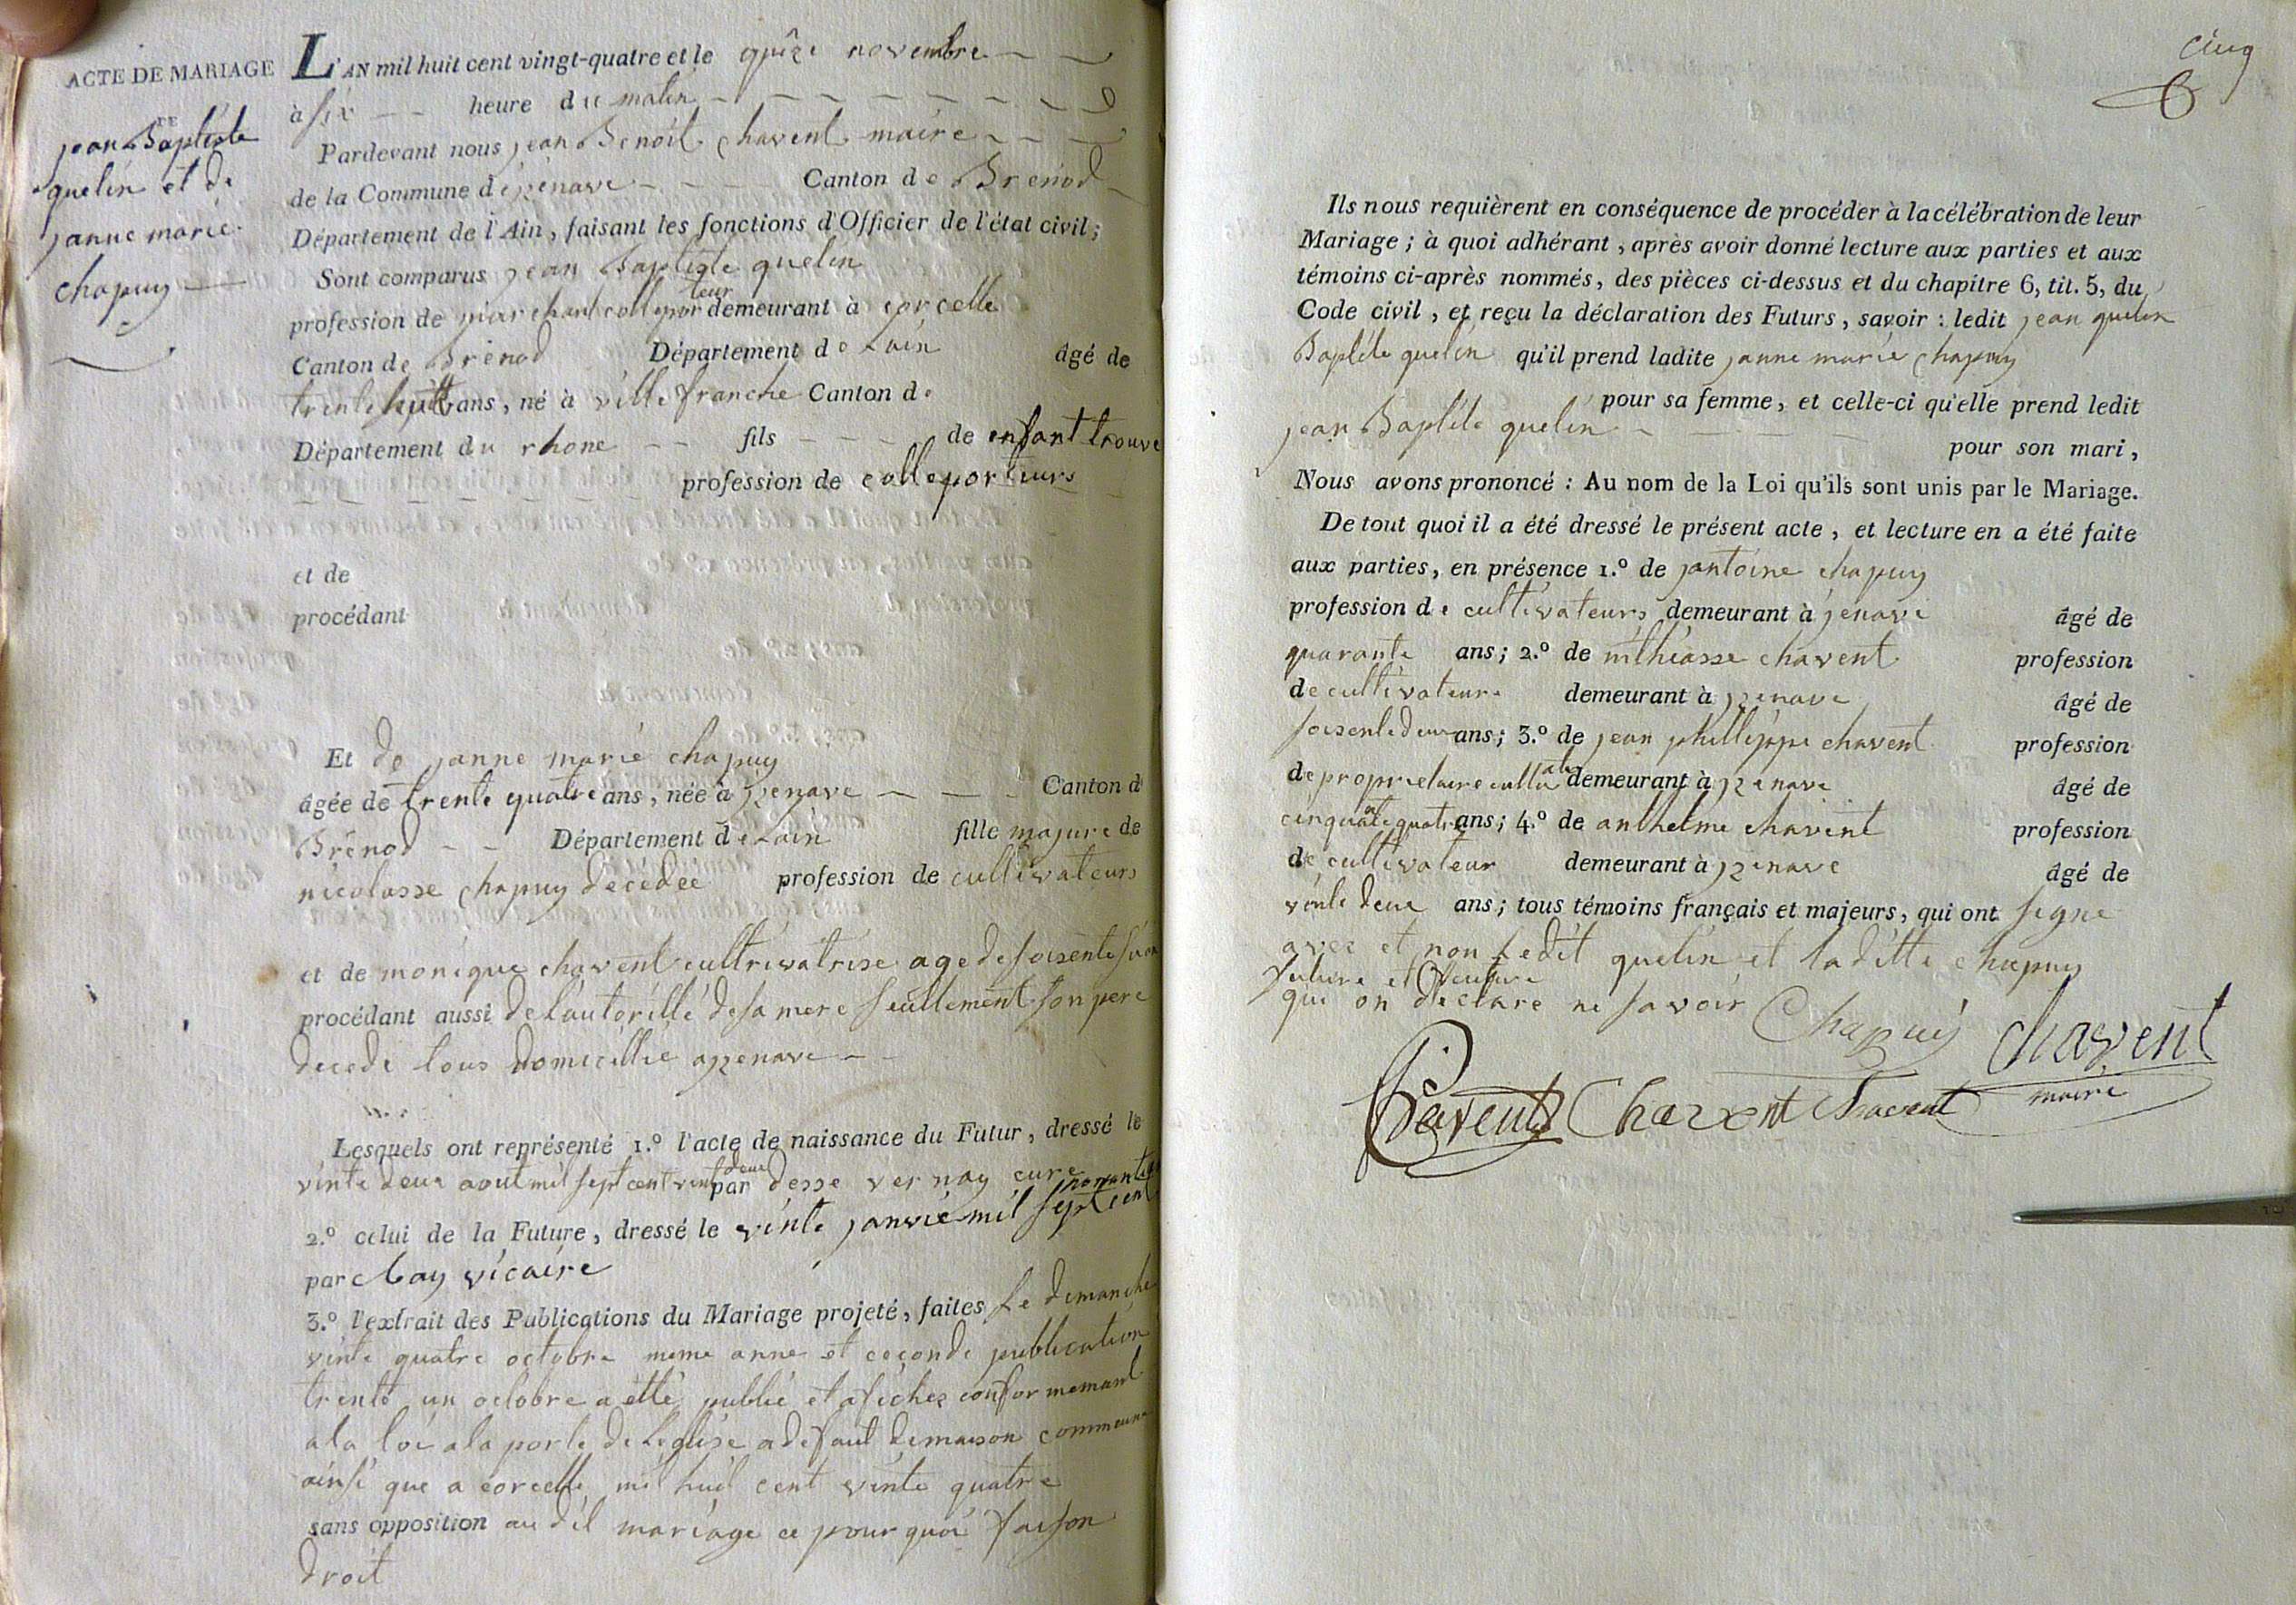 ACTE DE MARIAGE
DE
jean Baptiste
quelin et de
janne marie
chapuy
L'AN mil huit cent vingt-quatre et le novembre
à six heure du matin
Pardevant nous jean Benoit chavent maire
de la Commune d izenave Canton de Brenod
Département de l'Ain, faisant les fonctions d'Officier de l'état civil;
Sont comparus jean Baptiste quelin
profession de marchant colleporteur demeurant à corcelle
Canton de Brénod Département de Lain âgé de
trente huit ans, né à ville franche Canton de
Département du rhone fils de enfant trouve
profession de colleporteurs
et de
procédant
Et de janne marie chapuy
âgée de trente quatre ans, née à izenave Canton d
Brénod Département de Lain fille majure de
nicolasse chapuy decedee profession de cultivateurs
et de monique chavent cultrivatrise age de soisente
procédant aussi de L'autorillé de sa mere seullement son pere
decede tous domicillié a izenave
Lesquels ont représenté 1.º l'acte de naissance du Futur, dressé le
vinte deux aout mil sept cent par desse vernay cure
2.º celui de la Future, dressé le vinte janvié mil sept cent nonante
par Bay vicaire
3.º l'extrait des Publications du Mariage projeté, faites Le dimanche
vinte quatre octobre meme anne et ceconde publication
trente un octobre a etté publié et afichez conformemant
a la loi a la porte de Leglise a defaut de maison commeune
ainsi que a corcelle mil huit cent vinte quatre
sans opposition au dit mariage ce pour quoi faison
droit
cinq
Ils nous requièrent en conséquence de procéder à la célébration de leur
Mariage; à quoi adhérant, après avoir donné lecture aux parties et aux
témoins ci-après nommés, des pièces ci-dessus et du chapitre 6, tit. 5, du
Code civil, et reçu la déclaration des Futurs, savoir : ledit jean quelin
Baptite quelin qu'il prend ladite janne marie chapuy
pour sa femme, et celle-ci qu'elle prend ledit
jean Baptite quelin
pour son mari,
Nous avons prononcé : Au nom de la Loi qu'ils sont unis par le Mariage.
De tout quoi il a été dressé le présent acte, et lecture en a été faite
aux parties, en présence 1.º de jantoine chapuy
profession de cultivateurs demeurant à jenave âgé de
quarante ans; 2.º de chavent profession
de cultivateur demeurant à izenave âgé de
soisente deux ans; 3.º de jean phillippe chavent profession
de proprietaire demeurant à izenave âgé de
cinquante quatre ans; 4.º de anthelme chavent profession
de cultivateur demeurant à izenave âgé de
vinte deux ans; tous témoins français et majeurs, qui ont signe
avec et non Ledit quelin et laditte chapuy
future et
qui on declare ne savoir Chapuis chavent
maire
Chavent Chavent Chavent